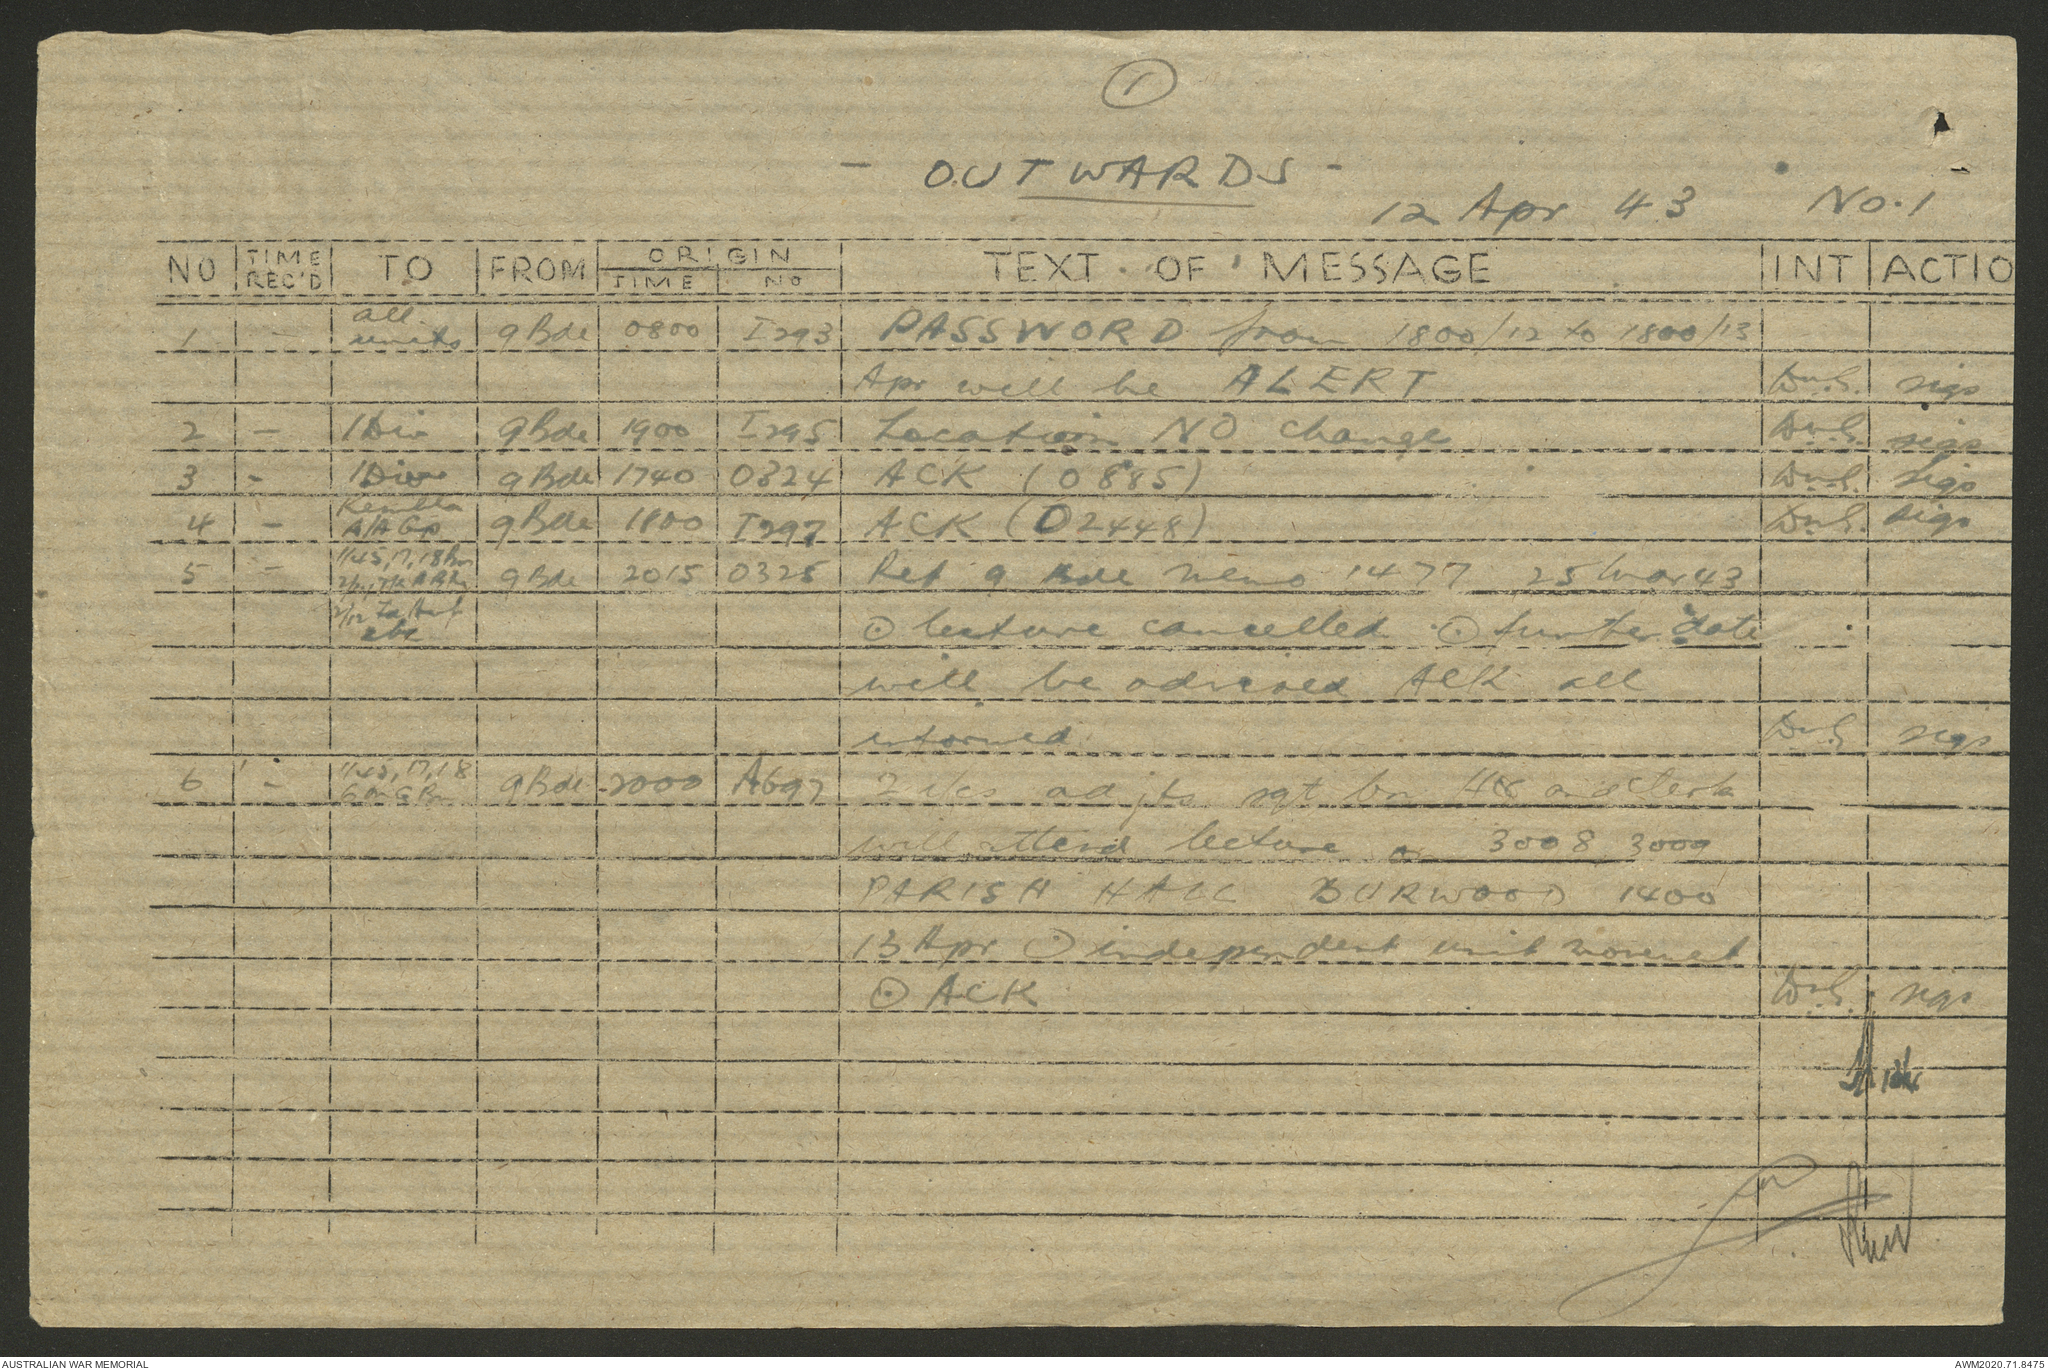 1
- OUTWARDS -
12 Apr 43 No. 1
NO TIME REC'D TO FROM ORIGIN TIME NO TEXT OF MESSAGE INT ACTIO
1 - all units 9 Bde 0800 I293 PASSWORD from 1800/12 to 1800/13
Apr will be ALERT sigs
2 - 1 Div 9 Bde 1900 I295 Location NO change sigs
3 - 1 Div 9 Bde 1740 O324 ACK (O885) sigs
4 - Kembla A/A Gp 9 Bde 1800 I297 ACK (O2448) sigs
5 - 1/45, 17, 18 Bn 9 Bde 2015 O325 Ref 9 Bde memo 1477 25 Mar 43
⊙ lecture cancelled ⊙ further date
will be advised ACK all
informed sigs
6 - 1/45, 17, 18 9 Bde 2000 A697 2 i/cs adjts sgt bn HQ and clerk
will attend lecture on 3008, 3009
PARISH HALL BURWOOD 1400
13 Apr ⊙ independent unit movement
⊙ ACK sigs
AUSTRALIAN WAR MEMORIAL
AWM2020.71.8475